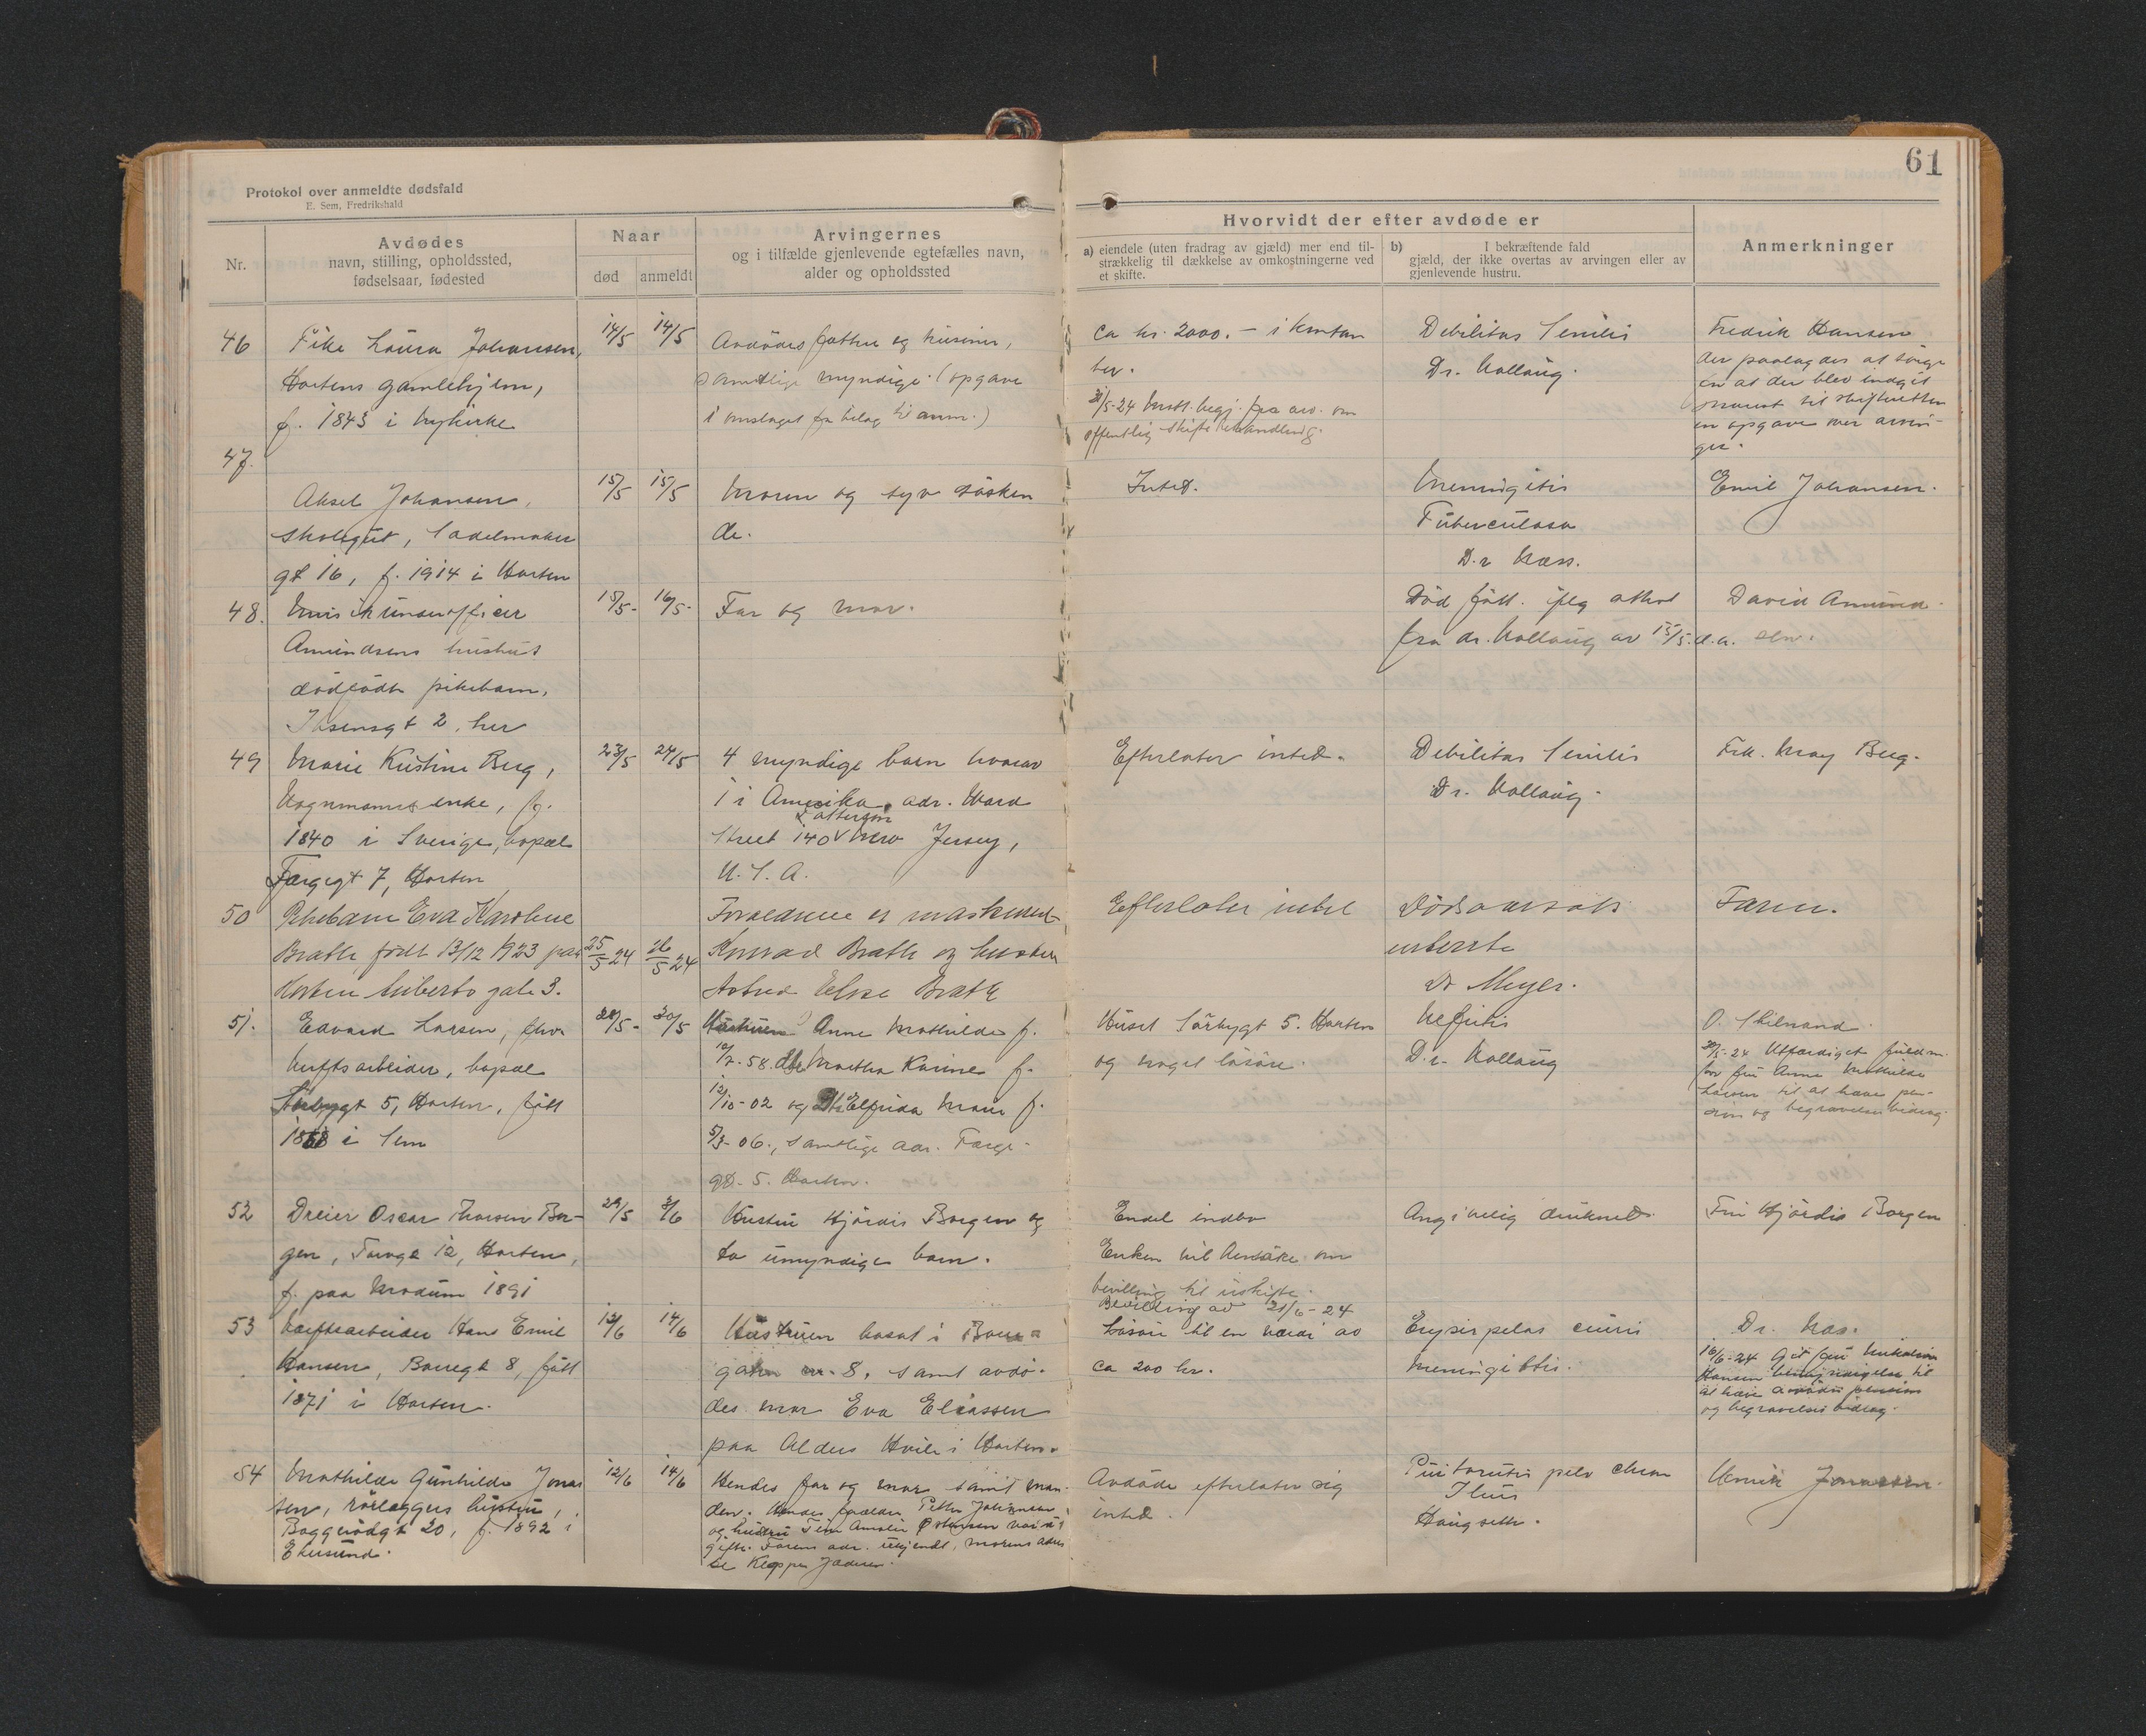 61
Protokol over anmeldte dødsfald
E. Sem, Fredrikshald
Nr.
Avdødes
navn, stilling, opholdssted,
fødselsaar, fødested
Naar
død
anmeldt
Arvingernes
og i tilfælde gjenlevende egtefælles navn,
alder og opholdssted
Hvorvidt der efter avdøde er
a) eiendele (uten fradrag av gjæld) mer end til-
strækkelig til dækkelse av omkostningerne ved
et skifte.
b) I bekræftende fald
gjæld, der ikke overtas av arvingen eller av
gjenlevende hustru.
Anmerkninger
46
Pike Laura Johansen,
Hortens gamlehjem,
f. 1843 i Nykirke
14/5
14/5
Avdødes fættre og kusiner,
samtlige myndige (opgave
i omslaget for bilag til anm.)
Ca kr. 2000.- i kontan
ter.
31/5-24 begj. fra arv. om
offentlig skiftebehandling.
Debilitas Senilis
Dr. Kollaug.
Fredrik Hansen
der paalagdes at sørge
for at der blev indgit
til skifteretten
en opgave over arvin-
ger.
47.
Aksel Johansen,
skolegut, Sadelmaker
gt 16, f. 1914 i Horten
15/5
15/5
Moren og syv søsken
de.
Intet.
Meningitis
Tuberculosa
D.r Næss.
Emil Johansen.
48.
Musikunderofficer
Amundsens hustrus
dødfødte pikebarn,
Ibsensgt 2, her
15/5-
16/5-
Far og mor.
Død født. iflg attest
fra dr. Kollaug av 15/5 d.a.
David Amund-
sen.
49
Marie Kristine Berg,
Vognmands enke, f.
1840 i Sverige, bopæl
Færgegt 7, Horten
23/5
24/5
4 myndige barn hvorav
1 i Amerika, adr. Ward
Patterson
Street 140 New Jersey,
U.S.A.
Efterlater intet.
Debilitas Senilis
Dr. Kollaug.
Frk. May Berg.
50
Pikebarn Eva Karoline
Brathe født 13/12 1923 paa
Horten gate 3.
25/5 24
26/5 24
Forældrene er maskinist
Konrad Brathe og hustru
Astrid Elise Brathe
Efterlater intet
Dødsaarsak
ukjendt
Dr Meyer.
Faren.
51.
Edvard Larsen, fhv.
Verftsarbeider, bopæl
Sørbygt 5, Horten, født
1858 i Sem
28/5-
30/5
Hustruen Anne Mathilde f.
10/7-58. Martha Karine f.
12/10-02 og Elfrida Marie f.
5/3-06., samtlige adr. Færge-
gt. 5. Horten.
Huset Sørbygt 5. Horten
og noget løsøre.
Nefritis
D.r. Kollaug
O. Skilnand
30/5-24 Utfærdiget fuldm.
for fru Anne Mathilde
Larsen til at hæve pen-
sion og begravelsesbidrag.
52
Dreier Oscar Thorsen Bor-
gen, Torvgt 12, Horten,
f. paa Modum 1891
29/5
3/6
Hustru Hjørdis Borgen og
to umyndige barn.
Endel indbo
Enken vil ansøke om
bevilling til uskifte.
Bevilling av 21/6-24
Angivelig druknet.
Fru Hjørdis Borgen
53
Værftsarbeider Hans Emil
Hansen, Borregt 8, født
1871 i Horten.
12/6
14/6
Hustruen bosat i Borre-
gaten nr. 8, samt avdø-
des mor Eva Eliassen
paa Alders Hvile i Horten.
Løsøre til en værdi av
ca 200 kr.
Erysipelas cruris
Meningittis.
Dr. Næs.
16/6-24 Git fru
Hansen bemyndigelse til
at hæve avdødes pension
og begravelses bidrag.
54
Mathilde Gunhilde Jonas
sen, rørlæggers hustru,
Baggerødgt 20, f. 1892 i
Ekersund.
12/6
14/6
Hendes far og mor samt man-
den. Hendes forældre Petter Johannesen
og hustru Amalie
gifte. Farens adr. ukjendt, morens adres
se Klepp pr Jæderen.
Avdøde efterlater sig
intet.
Haugseth.
Henrik Jonassen.